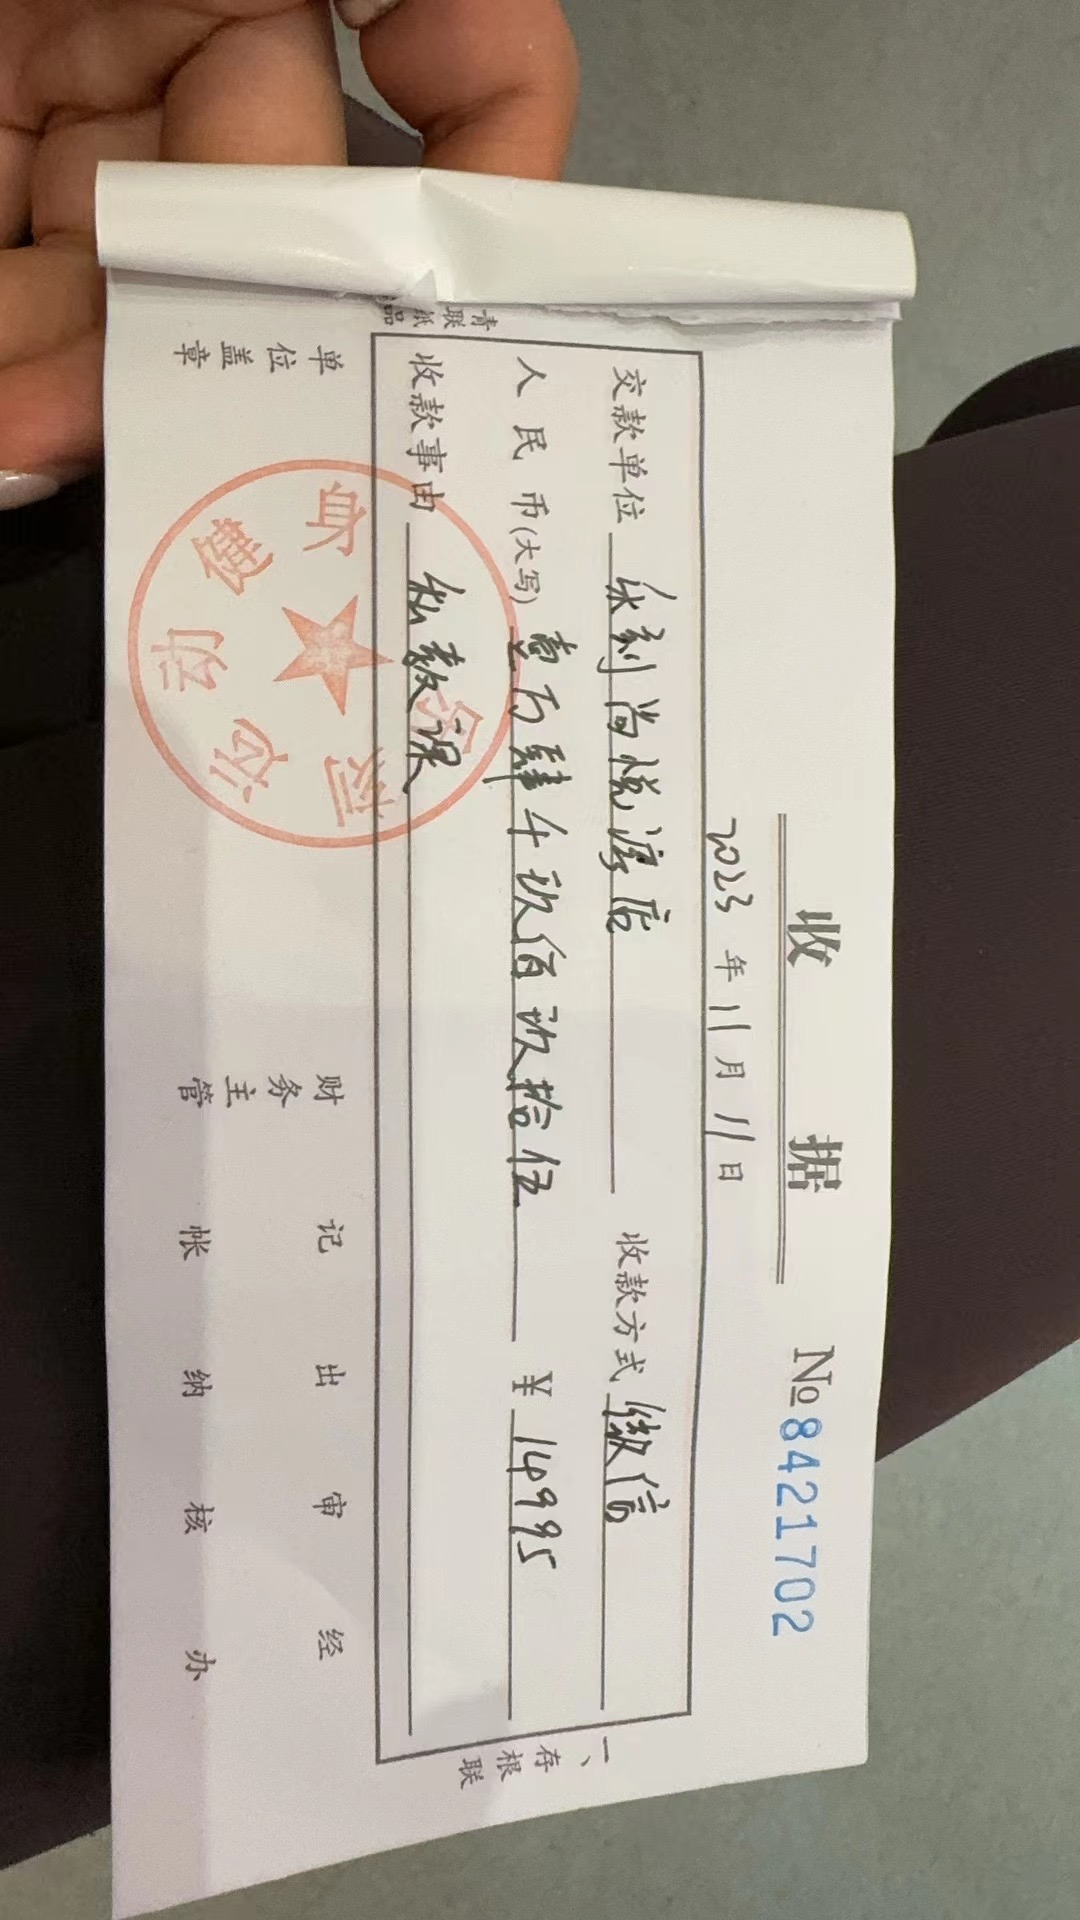 收 据
№8421702
2023 年 11 月 11 日
交款单位 永利尚悦湾店 收款方式 微信
人民币(大写) 壹万肆千玖佰玖拾伍 ¥ 14995
收款事由 私教课
一、存根联
青联纸品
单位盖章 财务主管 记帐 出纳 审核 经办
运动健身